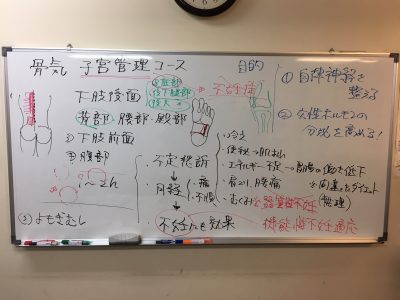 骨気 子宮管理コース
下肢後面
背部・腹部・殿部
下肢前面
腹部
② よもぎむし
不定愁訴
月経 痛 不順
不妊にも効果
不妊症
目的
① 自律神経を
整える
② 女性ホルモンの
分泌を高める！
冷え
便秘→肌あれ
エネルギー不足→胃腸の働き低下
肩こり、腰痛
むくみ
器質性不妊
機能性不妊適応